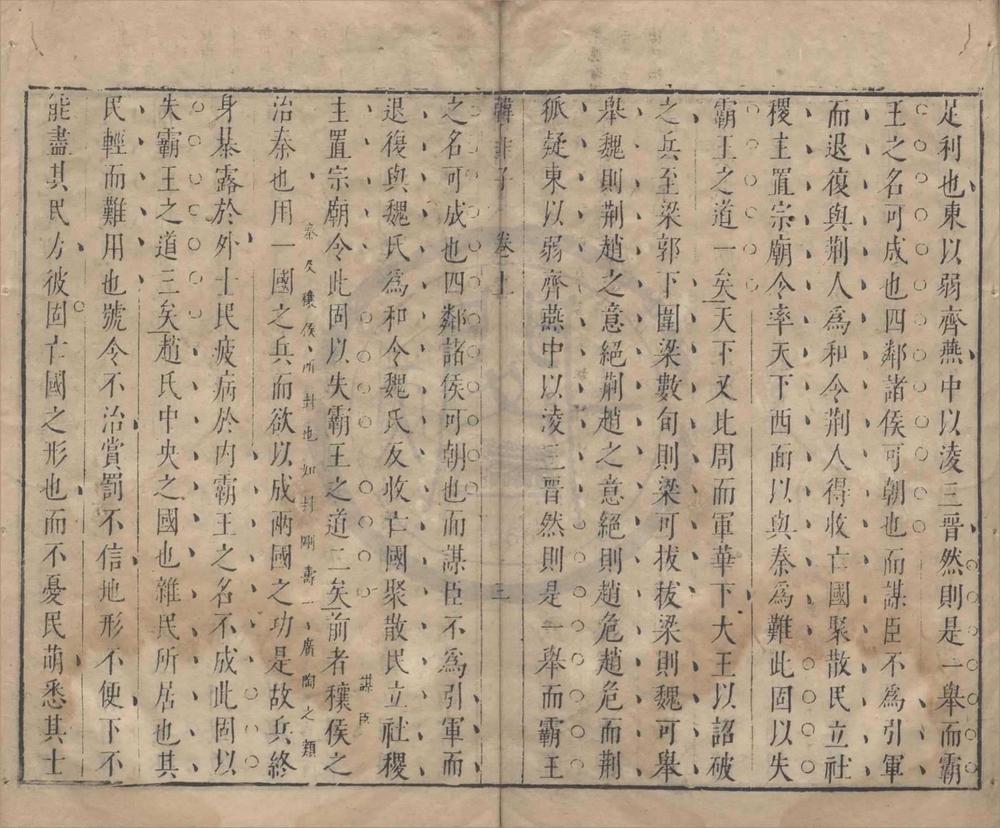 足利也東以弱齊燕中以淩三晉然則是一舉而霸
王之名可成也四鄰諸侯可朝也而謀臣不為引軍
而退復與荆人為和令荆人得收亡國聚散民立社
稷主置宗廟令率天下西面以與秦為難此固以失
霸王之道一矣天下又比周而軍華下大王以詔破
之兵至梁郭下圍梁數旬則梁可拔拔梁則魏可舉
舉魏則荆趙之意絕荆趙之意絕則趙危趙危而荆
狐疑東以弱齊燕中以淩三晉然則是一舉而霸王
韓非子 卷之上 三
之名可成也四鄰諸侯可朝也而謀臣不為引軍而
退復與魏氏為和令魏氏反收亡國聚散民立社稷
謀臣
主置宗廟令此固以失霸王之道二矣前者穰侯之
秦反穰侯所封也如封剛壽以廣陶之類
治秦也用一國之兵而欲以成兩國之功是故兵終
身暴露於外士民疲病於內霸王之名不成此固以
失霸王之道三矣趙氏中央之國也雜民所居也其
民輕而難用也號令不治賞罰不信地形不便下不
能盡其民力彼固亡國之形也而不憂民萌悉其士